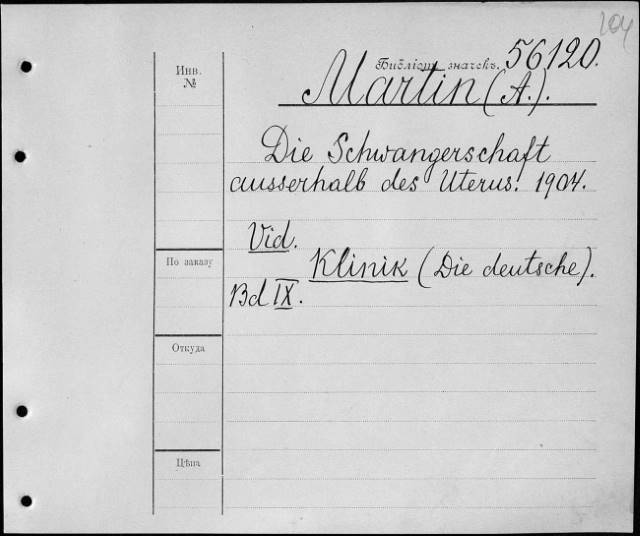 204
Инв.
№
Библіот. значекъ. 56120.
Martin (A.).
Die Schwangerschaft
ausserhalb des Uterus. 1904.
Vid.
Klinik (Die deutsche).
Bd IX.
По заказу
Откуда
Цѣна